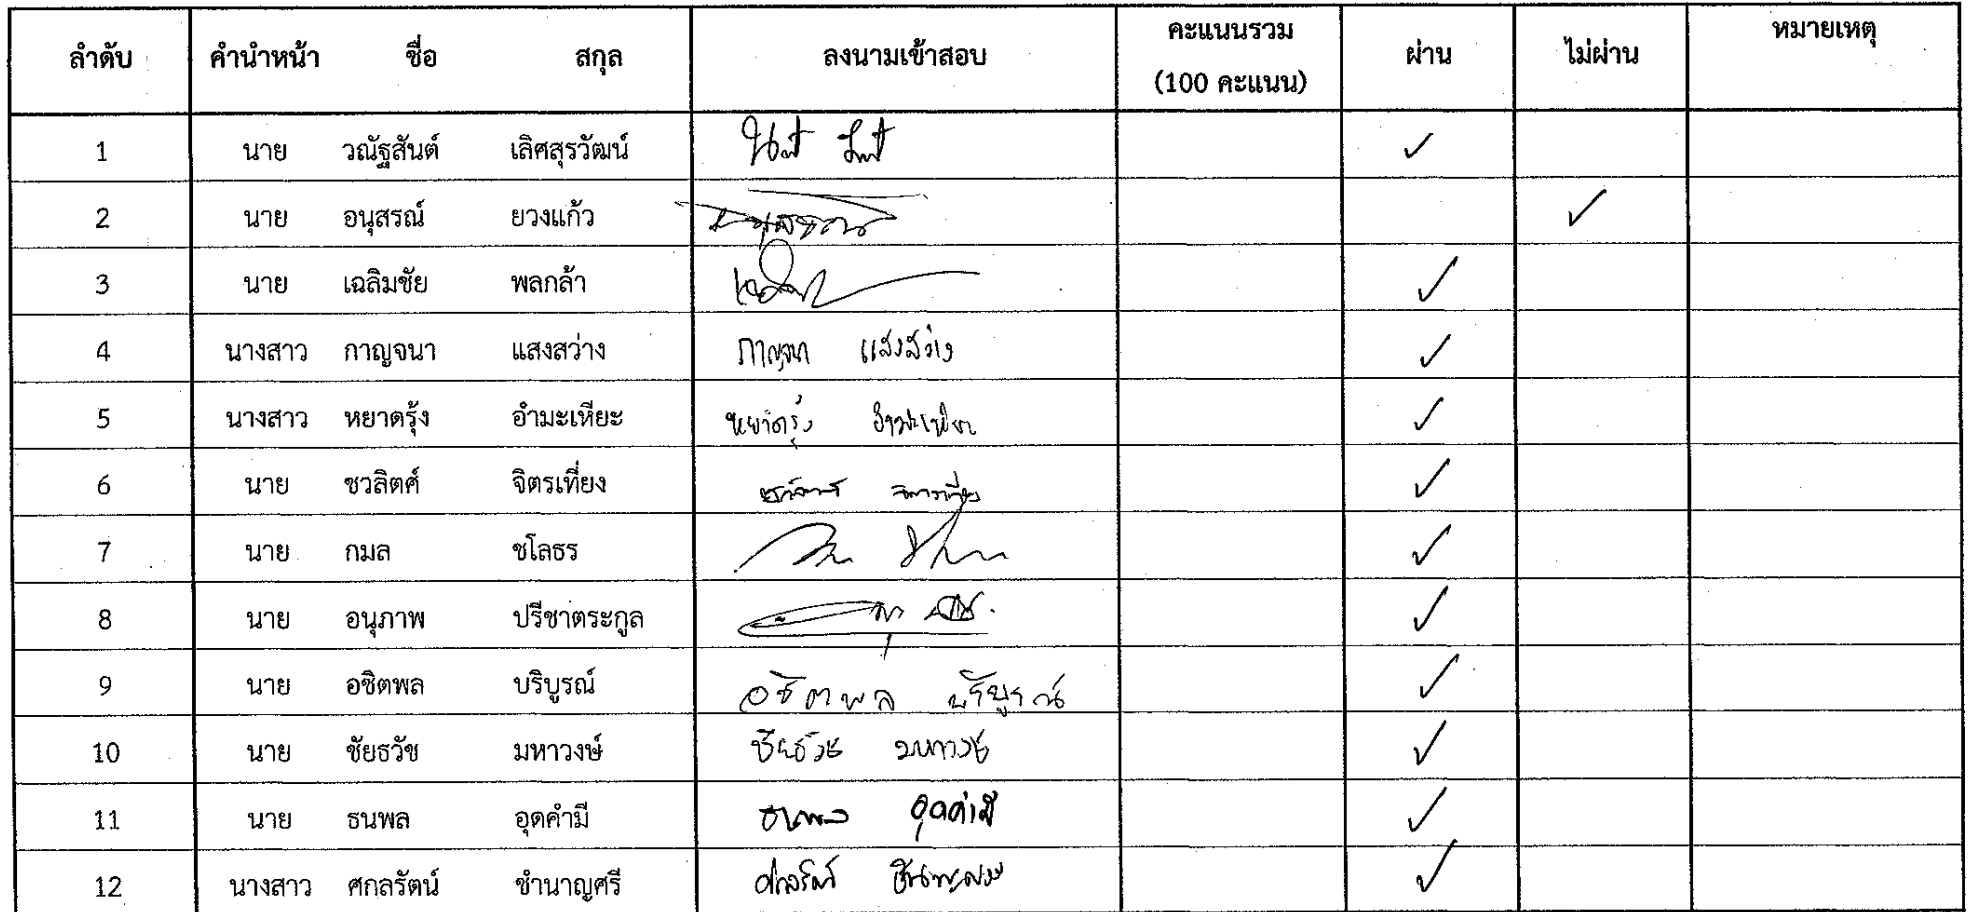 ลำดับ คำนำหน้า ชื่อ สกุล ลงนามเข้าสอบ คะแนนรวม (100 คะแนน) ผ่าน ไม่ผ่าน หมายเหตุ
1 นาย วณัฐสันต์ เลิศสุรวัฒน์ ✓
2 นาย อนุสรณ์ ยวงแก้ว ✓
3 นาย เฉลิมชัย พลกล้า ✓
4 นางสาว กาญจนา แสงสว่าง กาญจนา แสงสว่าง ✓
5 นางสาว หยาดรุ้ง อำมะเหียะ หยาดรุ้ง อำมะเหียะ ✓
6 นาย ชวลิตศ์ จิตรเที่ยง ✓
7 นาย กมล ชโลธร ✓
8 นาย อนุภาพ ปรีชาตระกูล ✓
9 นาย อชิตพล บริบูรณ์ อชิตพล บริบูรณ์ ✓
10 นาย ชัยธวัช มหาวงษ์ ชัยธวัช มหาวงษ์ ✓
11 นาย ธนพล อุดคำมี ธนพล อุดคำมี ✓
12 นางสาว ศกลรัตน์ ชำนาญศรี ศกลรัตน์ ✓